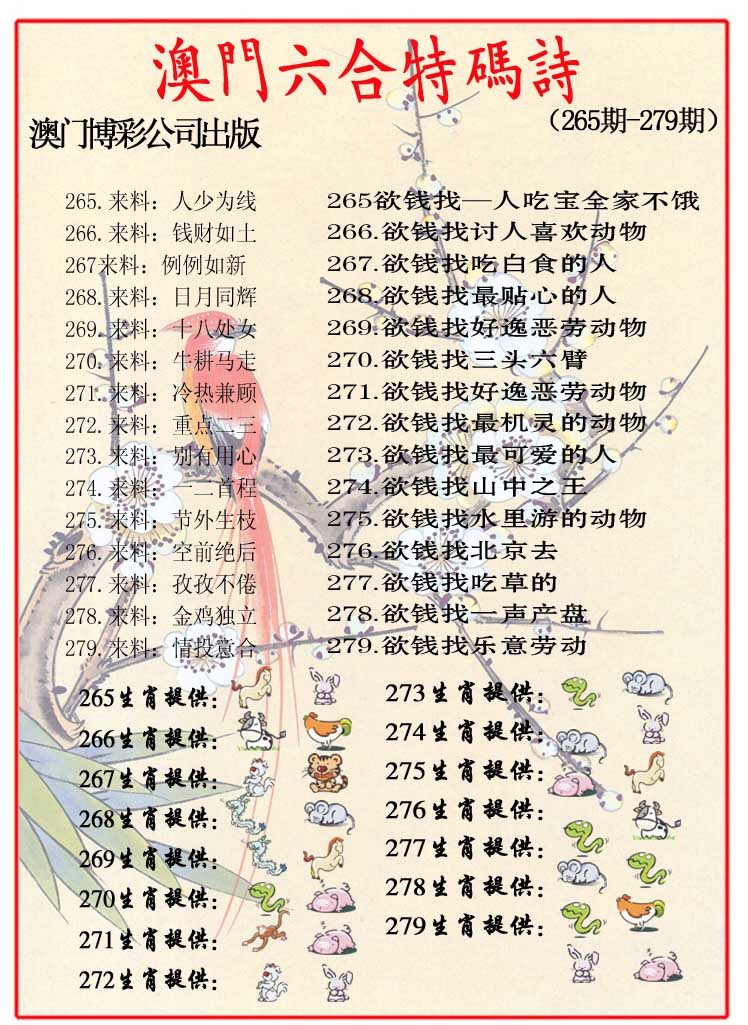 澳門六合特碼詩
澳门博彩公司出版
（265期-279期）
265.来料：人少为线
266.来料：钱财如土
267来料：例例如新
268.来料：日月同辉
269.来料：十八处女
270.来料：牛耕马走
271.来料：冷热兼顾
272.来料：重点二三
273.来料：别有用心
274.来料：一二首程
275.来料：节外生枝
276.来料：空前绝后
277.来料：孜孜不倦
278.来料：金鸡独立
279.来料：情投意合
265欲钱找一人吃宝全家不饿
266.欲钱找讨人喜欢动物
267.欲钱找吃白食的人
268.欲钱找最贴心的人
269.欲钱找好逸恶劳动物
270.欲钱找三头六臂
271.欲钱找好逸恶劳动物
272.欲钱找最机灵的动物
273.欲钱找最可爱的人
274.欲钱找山中之王
275.欲钱找水里游的动物
276.欲钱找北京去
277.欲钱找吃草的
278.欲钱找一声产盘
279.欲钱找乐意劳动
265生肖提供：
266生肖提供：
267生肖提供：
268生肖提供：
269生肖提供：
270生肖提供：
271生肖提供：
272生肖提供：
273生肖提供：
274生肖提供：
275生肖提供：
276生肖提供：
277生肖提供：
278生肖提供：
279生肖提供：